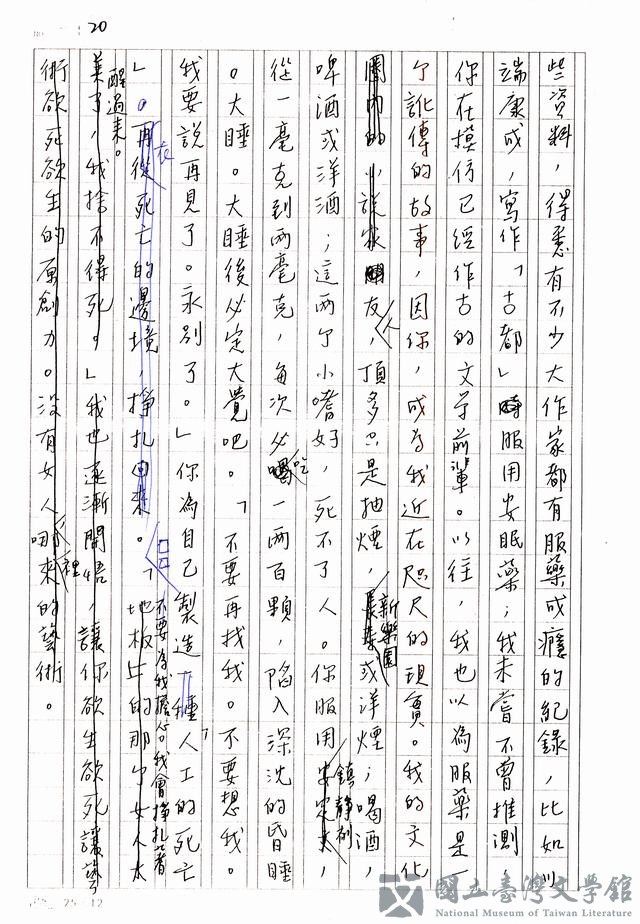 20
些資料，得悉有不少大作家都有服藥成癮的紀錄，比如川
端康成，寫作「古都」時服用安眠藥；我未嘗不曾推測，
你在摸仿已經作古的文学前輩。以往，我也以為服藥是一
个訛傳的故事，因你，成為我近在咫尺的現實。我的文化
圈內的小說家朋友，人頂多只是抽煙，長壽新樂園或洋煙；喝酒，
啤酒或洋酒；這兩个小嗜好，死不了人。你服用安定鎮靜劑，
從一毫克到兩毫克，每次必吃一兩百顆，陷入深沈的昏睡
。大睡。大睡後必定大覺吧。「不要再找我。不要想我。
我要說再見了。永別了。」你為自己製造一種「人工的死亡
」。再從死亡的邊境，掙扎回來。「不要為我擔心。我會掙扎著
醒過來。地板上的那个女人太
美了，我捨不得死。」我也逐漸開悟，讓你欲生欲死讓藝
術欲死欲生的原創力。沒有女人哪裡來的藝術。
25 12
國立臺灣文學館
National Museum of Taiwan Literature